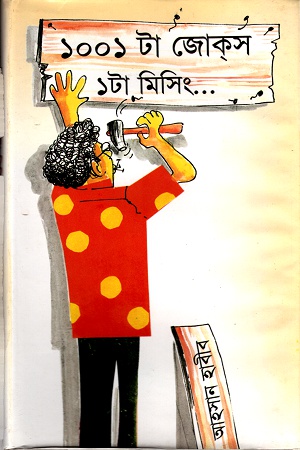 ১০০১ টা জোক্‌স
১টা মিসিং...
আহসান হাবীব